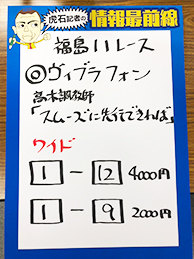 虎石記者の
情報最前線
福島11レース
◎ヴィブラフォン
高木調教師
「スムーズに先行できれば」
ワイド
1-12 4000円
1-9 2000円